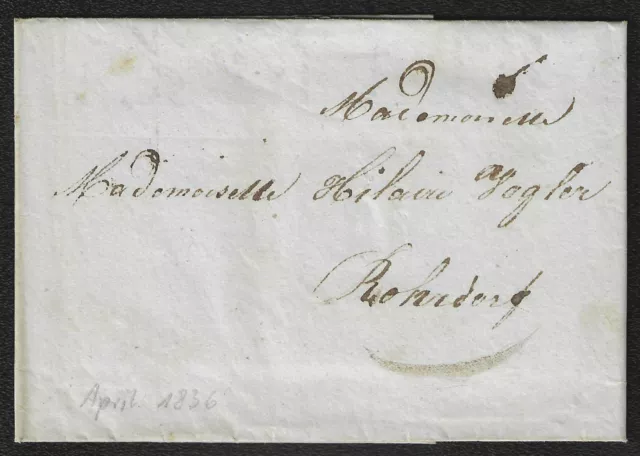 Mademoiselle
Mademoiselle Hilaire Vogler
Rohrdorf
April 1836